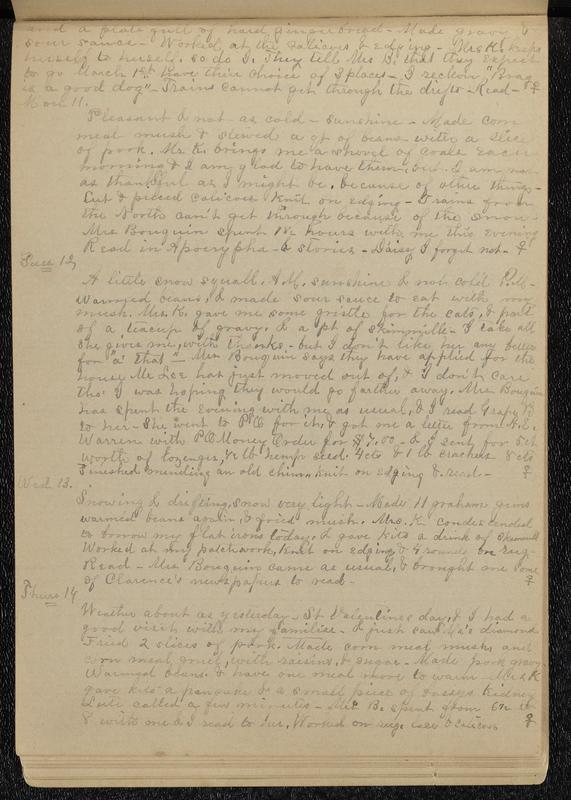 and a plate full of hard gingerbread - Made gravy &
sour sauce - Worked at the calicoes & edging - Mrs K. keeps
herself to herself, so do I. They tell Mrs B. that they expect
to go March 1st have their choice of 3 places - I reckon "Brag
is a good dog" - Trains cannot get through the drifts - Read -
Mon 11.
Pleasant & not as cold - Sunshine - Made corn
meal mush & stewed a qt of beans with a slice
of pork. Mr K. brings me a shovel of coals each
morning & I am glad to have them, but I am not
as thankful as I might be, because of other things -
Cut & pieced calicoes knit on edging - Trains from
the North can't get through because of the snow -
Mrs Bouquin spent 1½ hours with me this evening
Read in Apocrypha & stories - Daisy I forget not -
Tues 12
A little snow squall A.M. sunshine & not cold P.M.
Warmed beans, & made sour sauce to eat with my
mush. Mrs. K. gave me some gristle for the cats, & part
of a teacup of gravy, & a pt of skimmilk - I take all
she gives me, with thanks - but I don't like her any better
for "a' that" - Mrs Bouquin says they have applied for the
house Mr Lee has just moved out of, & I don't care
tho' I was hoping they would go farther away. Mrs Bouquin
has spent the evening with me as usual, & I read
to her - She went to P.O. for it, & got me a letter from
Warren with P.O. Money Order for $7.00 - & I sent for 5ct
worth of lozenges, lb hemp seed 4cts & 1 lb crackers 8cts
Finished mending an old chim. knit on edging & read -
Wed 13.
Snowing & drifting, snow very light - Made 11 graham gems
warmed beans again, & fried mush. Mrs. K. condescended
to borrow my flat irons today, & gave kits a drink of skimmilk
Worked at my patchwork, knit on edging & 4 rounds on rug -
Read - Mrs Bouquin came as usual, & brought me some
of Clarence's newspapers to read -
Thurs 14
Weather about as yesterday - St Valentines day, & I had a
good visit with my families - & just saw diamond
Fried 2 slices of pork. Made corn meal mush, and
corn meal gruel, with raisins, & sugar - Made pork gravy
Warmed beans & have one meal more to warm - Mrs K
gave kits a pancake & a small piece of kidney
called a few minutes - Mrs B. spent from 6½ to
8 with me & I read to her. Worked on rug & calicoes